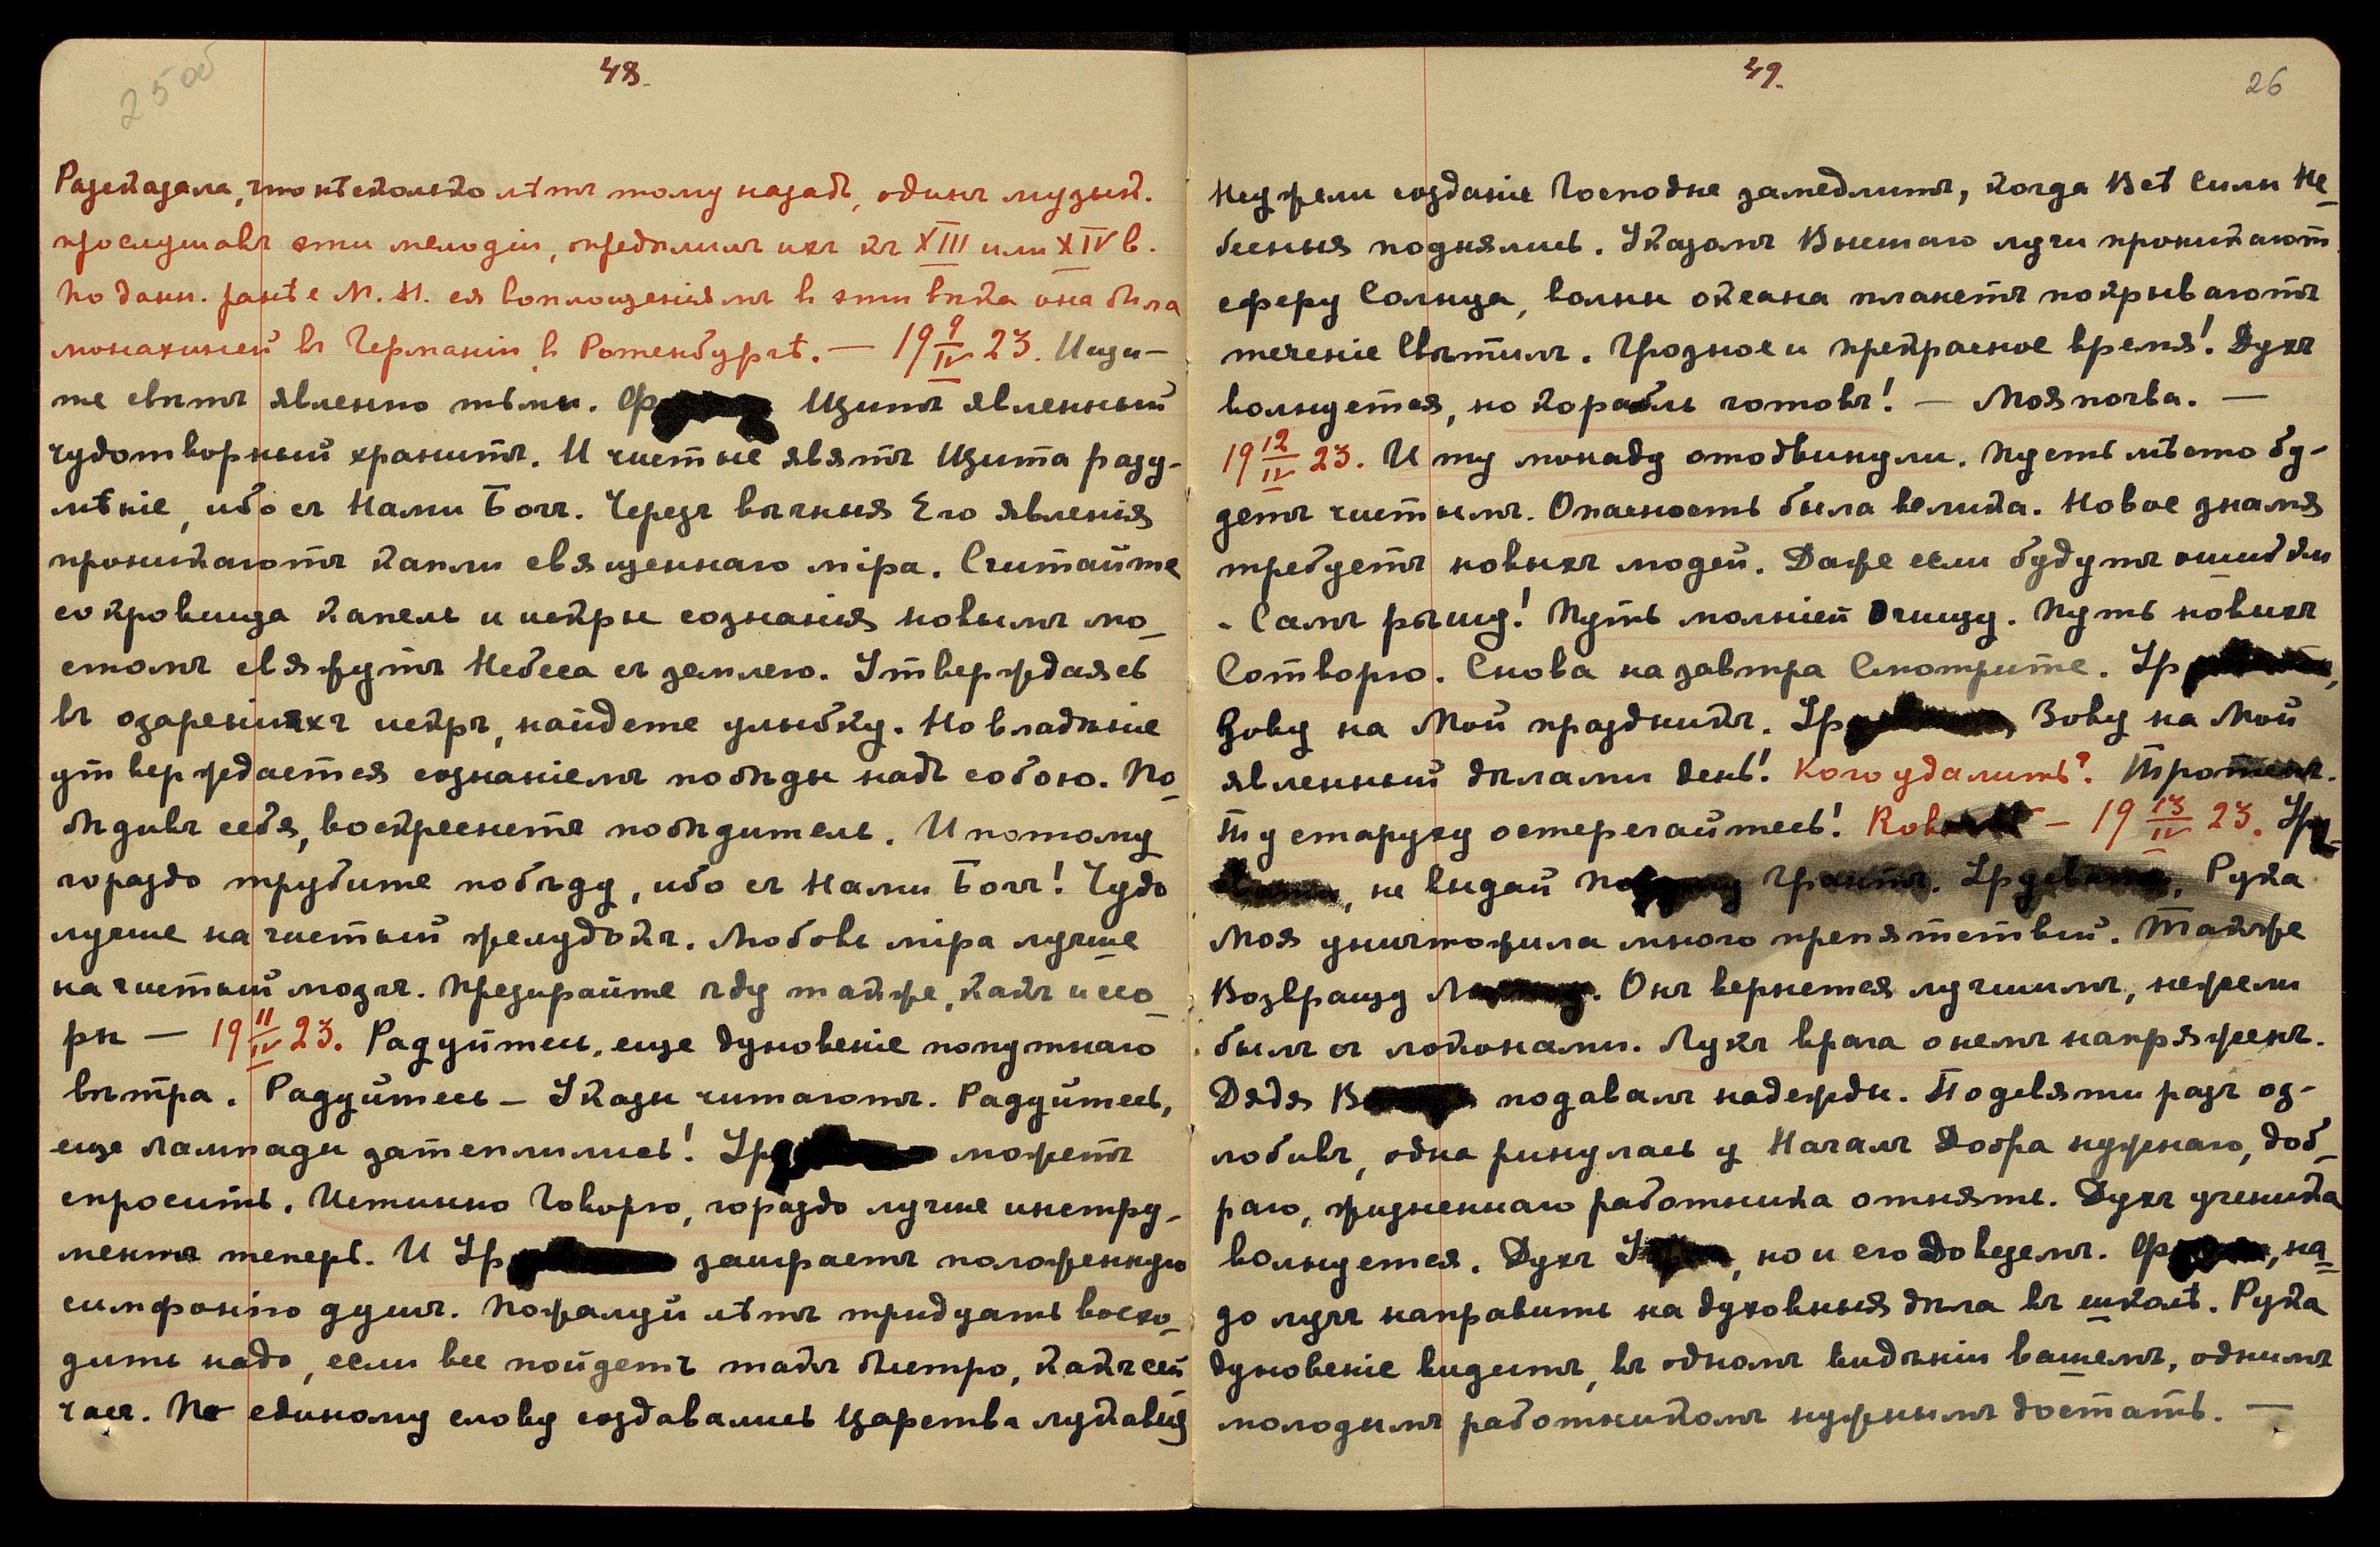 25 об
48.
Разсказала, что нѣсколько лѣтъ тому назадъ, одинъ музык.
прослушавъ эти мелодіи, опредѣлилъ ихъ къ XIII или XIV в.
По данн. ранѣе М. М. ея воплощеніямъ в эти вѣка она была
монахиней въ Германіи в Ротенбургѣ. — 19 9/IV 23. Ищи-
те свѣтъ явленно тьмы. Щитъ явленный
чудотворный хранитъ. И чистые явятъ Щита разу-
мѣніе, ибо съ Нами Богъ. Черезъ вѣчныя Его явленія
проникаютъ капли священнаго міра. Считайте
сокровища капель и искры сознанія новымъ мо-
стомъ свяжутъ Небеса съ землею. Утверждаясь
въ озареніяхъ искръ, найдете улыбку. Но владѣніе
утверждается сознаніемъ побѣды надъ собою. По-
бѣдивъ себя, воскреснетъ побѣдитель. И потому
гораздо трубите побѣду, ибо съ Нами Богъ! Чудо
лучше на чистый желудокъ. Любовь міра лучше
на чистый мозгъ. Презирайте ѣду также, какъ и ссо-
ры — 19 11/IV 23. Радуйтесь, еще дуновеніе попутнаго
вѣтра. Радуйтесь — Указы читаютъ. Радуйтесь,
еще лампады затеплились! Ур можетъ
спросить. Истинно Говорю, гораздо лучше инстру-
ментъ теперь. И Ур заиграетъ положенную
симфонію душъ. Пожалуй лѣтъ тридцать восхо-
дить надо, если все пойдетъ такъ быстро, какъ сей
часъ. По единому слову создавались Царства лукавыя
49.
26
Неужели созданіе Господне замедлитъ, когда Всѣ Силы Не-
бесныя поднялись. Указомъ Высшаго лучи проникают
сферу Солнца, волны океана планетъ покрываютъ
теченіе Свѣтилъ. Грозное и прекрасное время! Духъ
волнуется, но корабль готовъ! — Моя почва. —
19 12/IV 23. И ту монаду отодвинули. Пусть мѣсто бу-
детъ чистымъ. Опасность была велика. Новое знамя
требуетъ новыхъ людей. Даже если будутъ ошибки
- Самъ рѣшу! Путь молніей Очищу. Путь новыхъ
Сотворю. Снова на завтра Смотрите. Ур
Зову на Мой праздникъ. Ур Зову на Мой
явленный дѣлами день! Кого удалить?
Ту старуху остерегайтесь! Rob — 19 13/IV 23. Уру-
, не выдай Грантъ. Рука
Моя уничтожила много препятствій. Также
Возвращу Онъ вернется лучшимъ, нежели
былъ съ локонами. Лукъ врага онемъ напряженъ.
Дядя В подавалъ надежды. По девяти разъ оз-
лобивъ, одна ринулась у Началъ Добра нужнаго, доб-
раго, жизненнаго работника отнять. Духъ ученика
волнуется. Духъ , но и его Доведемъ. , на-
до лучъ направить на духовныя дѣла въ школѣ. Рука
дуновеніе видитъ, въ одномъ видѣніи вашемъ, однимъ
молодымъ работникомъ нужнымъ достать. —